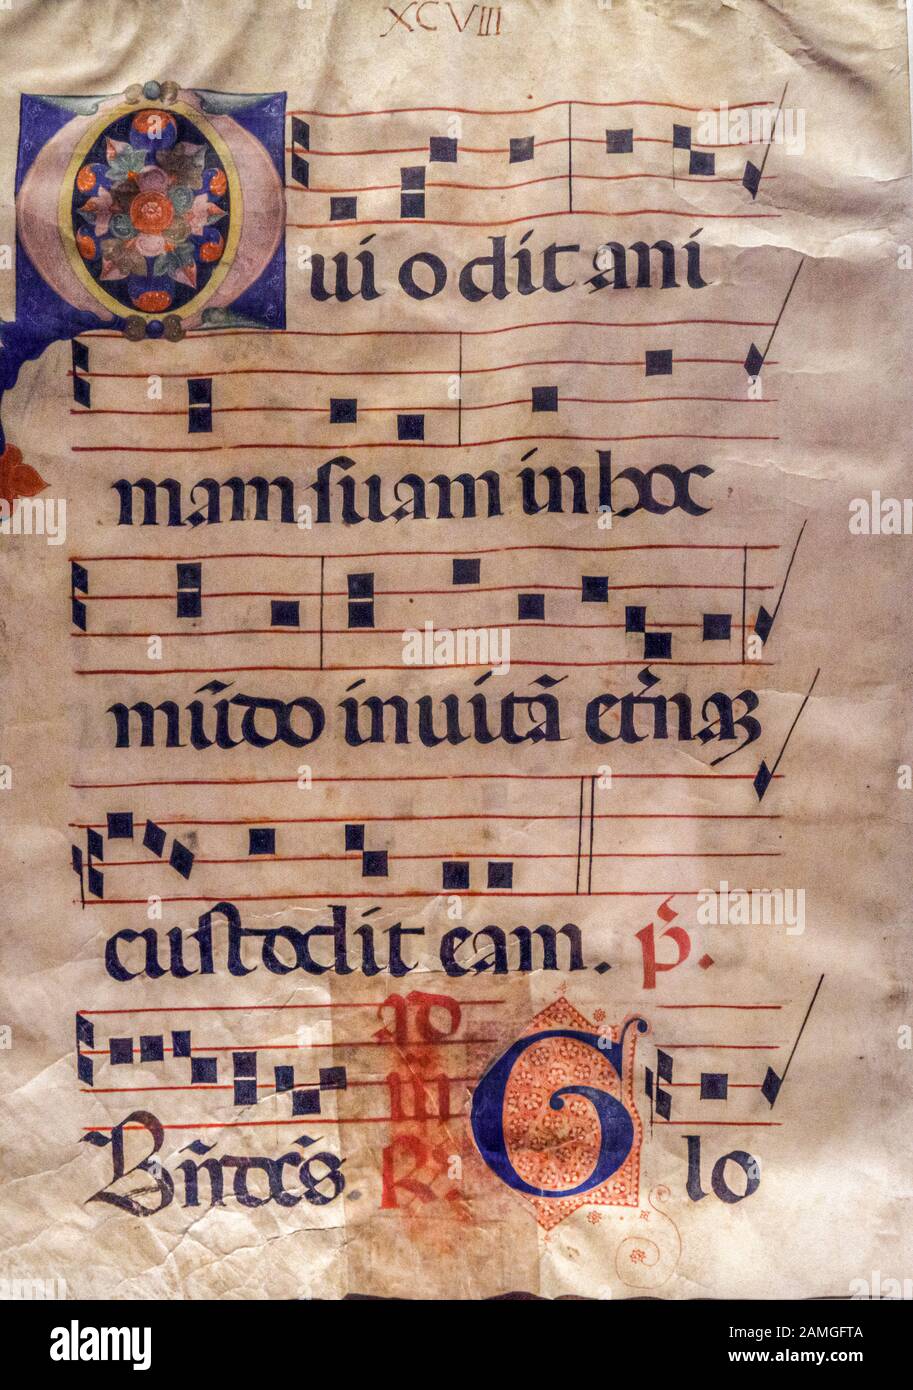 XCVIII
Qui odit ani
mam suam in hoc
mūdo in uitā et̃naꝫ
custodit eam. p̃.
Bñdc̃s. ad
m̃
R̃. Glo
alamy
Image ID: 2AMGFTA
www.alamy.com